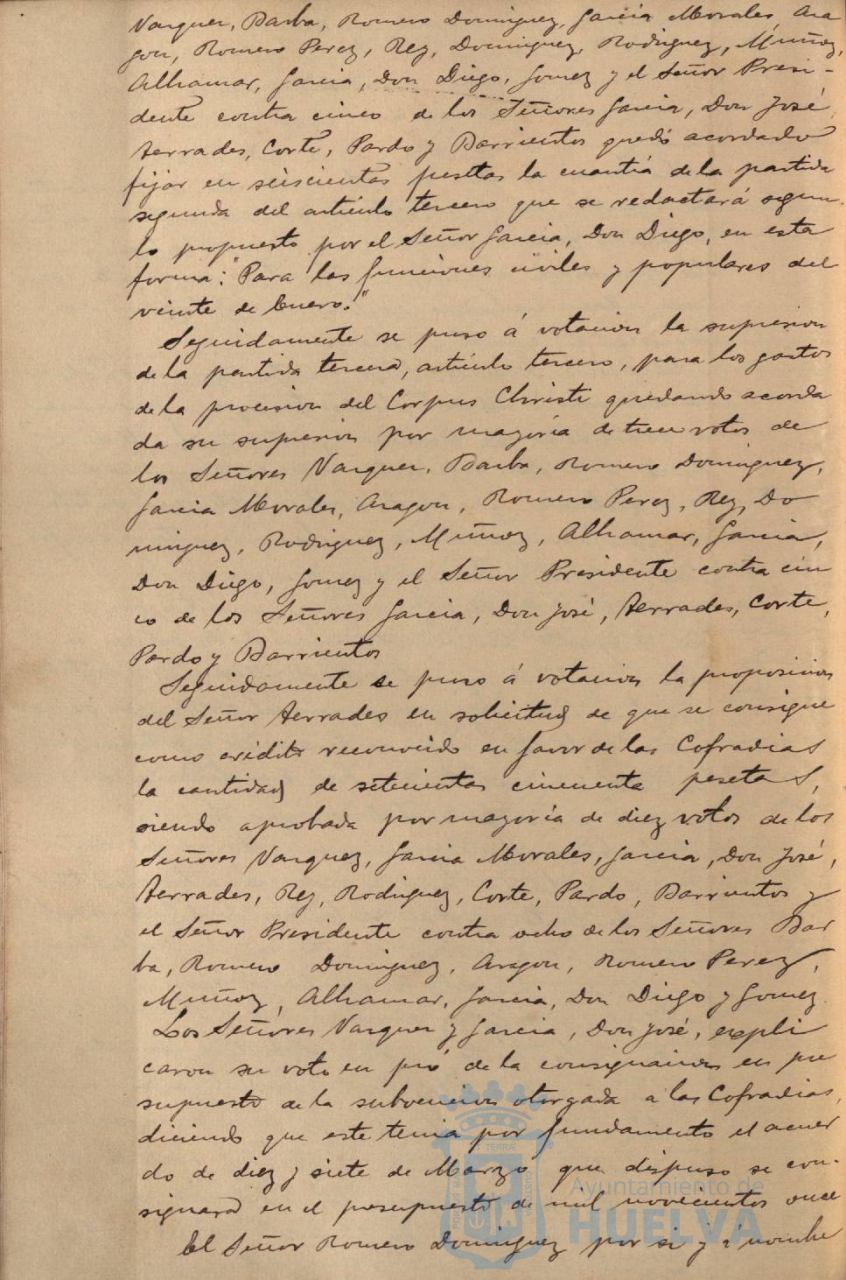 Vazquez, Barba, Romero Dominguez, Garcia Morales, Ara
gon, Romero Perez, Rey, Dominguez, Rodriguez, Muñoz,
Alhamar, Garcia, Don Diego, Gomez y el Señor Presi-
dente contra cinco de los Señores Garcia, Don José,
Terrades, Corte, Pardo y Barrientos quedó acordado
fijar en seiscientas pesetas la cuantía de la partida
segunda del artículo tercero que se redactará segun
lo propuesto por el Señor Garcia, Don Diego, en esta
forma: "Para las funciones civiles y populares del
veinte de Enero."
Seguidamente se puso á votacion la supresion
de la partida tercera, artículo tercero, para los gastos
de la procesion del Corpus Christi quedando acorda
da su supresion por mayoría de trece votos de
los Señores Vazquez, Barba, Romero Dominguez,
Garcia Morales, Aragon, Romero Perez, Rey, Do
minguez, Rodriguez, Muñoz, Alhamar, Garcia,
Don Diego, Gomez y el Señor Presidente contra cin
co de los Señores Garcia, Don José, Terrades, Corte,
Pardo y Barrientos
Seguidamente se puso á votacion la proposicion
del Señor Terrades en solicitud de que se consigne
como crédito reconocido en favor de las Cofradias
la cantidad de setecientas cincuenta pesetas,
siendo aprobada por mayoría de diez votos de los
Señores Vazquez, Garcia Morales, Garcia, Don José,
Terrades, Rey, Rodriguez, Corte, Pardo, Barrientos y
el Señor Presidente contra ocho de los Señores Bar
ba, Romero Dominguez, Aragon, Romero Perez,
Muñoz, Alhamar, Garcia, Don Diego y Gomez.
Los Señores Vazquez y Garcia, Don José, expli
caron su voto en pró de la consignacion en pre
supuesto de la subvencion otorgada a las Cofradias,
diciendo que este tenia por fundamento el acuer
do de diez y siete de Marzo que dispuso se con-
signara en el presupuesto de mil novecientos once
El Señor Romero Dominguez por si y á nombre
Ayuntamiento de
HUELVA